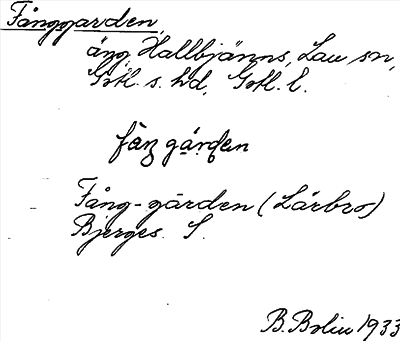 Fånggarden,
äng Hallbjänns, Lau sn,
Gotl. s. hd, Gotl. l.
fåŋ gárden
Fång-gården (Lärbro)
Bjerges. S.
B. Bolin 1933